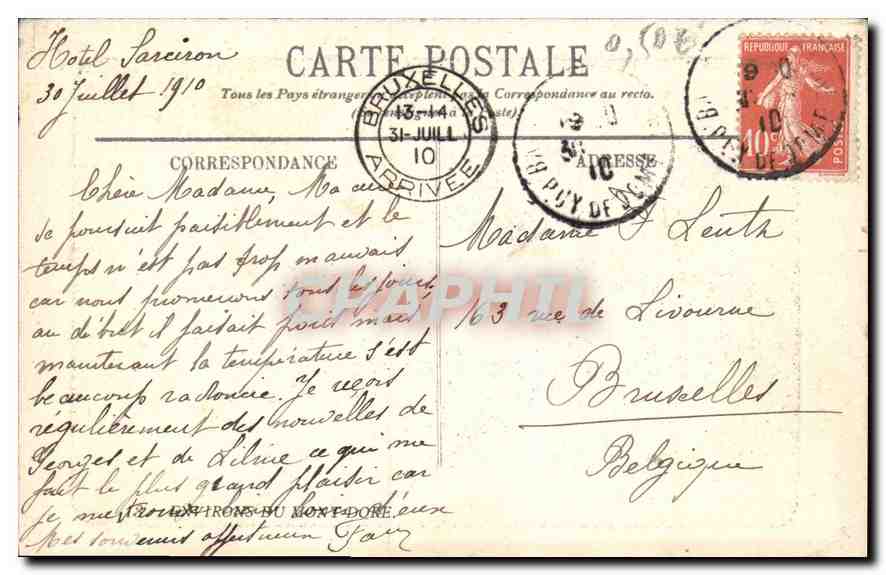 Hotel Sarciron
30 Juillet 1910
0,50€
CARTE POSTALE
Tous les Pays étrangers n'acceptent pas la Correspondance au recto.
BRUXELLES
13-14
31-JUILL
10
ARRIVÉE
30
10
PUY DE DOME
REPUBLIQUE FRANÇAISE
10c
POSTES
PUY DE DOME
CORRESPONDANCE
ADRESSE
Chère Madame, Ma cure
se poursuit paisiblement et le
temps n'est pas trop mauvais
car nous promenons tous les jours,
au début il faisait froid mais
maintenant la température s'est
beaucoup radoucie. Je reçois
régulièrement des nouvelles de
Georges et de ce qui me
fait le plus grand plaisir car
je me trouve bien loin d'eux
Mes souvenirs affectueux
Madame Lenth
163 rue de Livourne
Bruxelles
Belgique
CHAPITI
ENVIRONS DU MONT-DORE